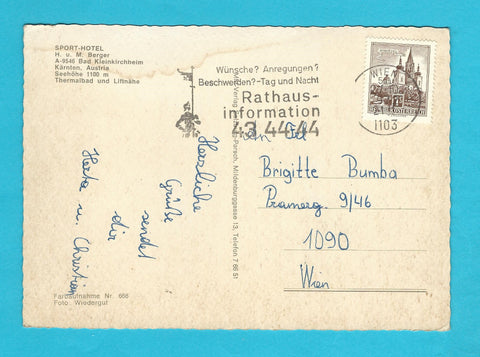 SPORT-HOTEL
H. u. M. Berger
A-9546 Bad Kleinkirchheim
Kärnten, Austria
Seehöhe 1100 m
Thermalbad und Liftnähe
Wünsche? Anregungen?
Beschwerden?-Tag und Nacht
Rathaus-
information
43 44 44
WIEN
1103
ÖSTERREICH
Herzliche
Grüße
sendet
dir
Herta u. Christian
Mildenburggasse 13, Telefon 7 66 51
Brigitte Bumba
Pramerg. 9/46
1090
Wien
Farbaufnahme Nr. 666
Foto Wiedergut